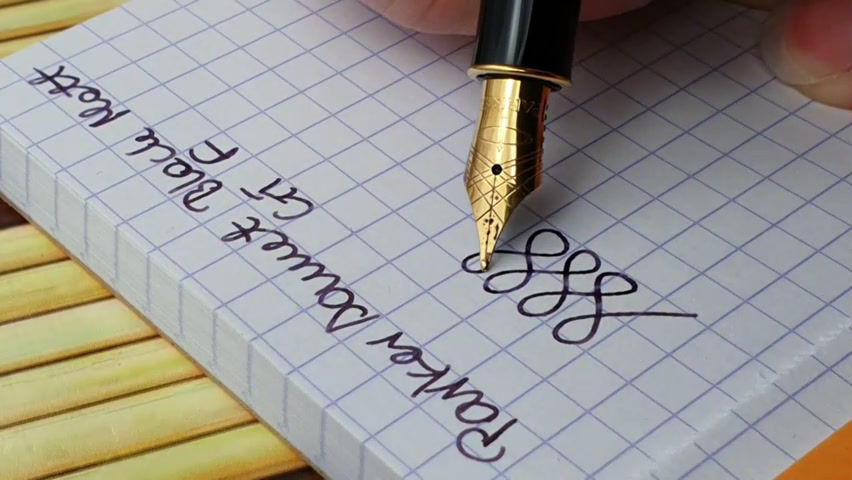 Parker Sonnet Black Matt
GT F
PARKER